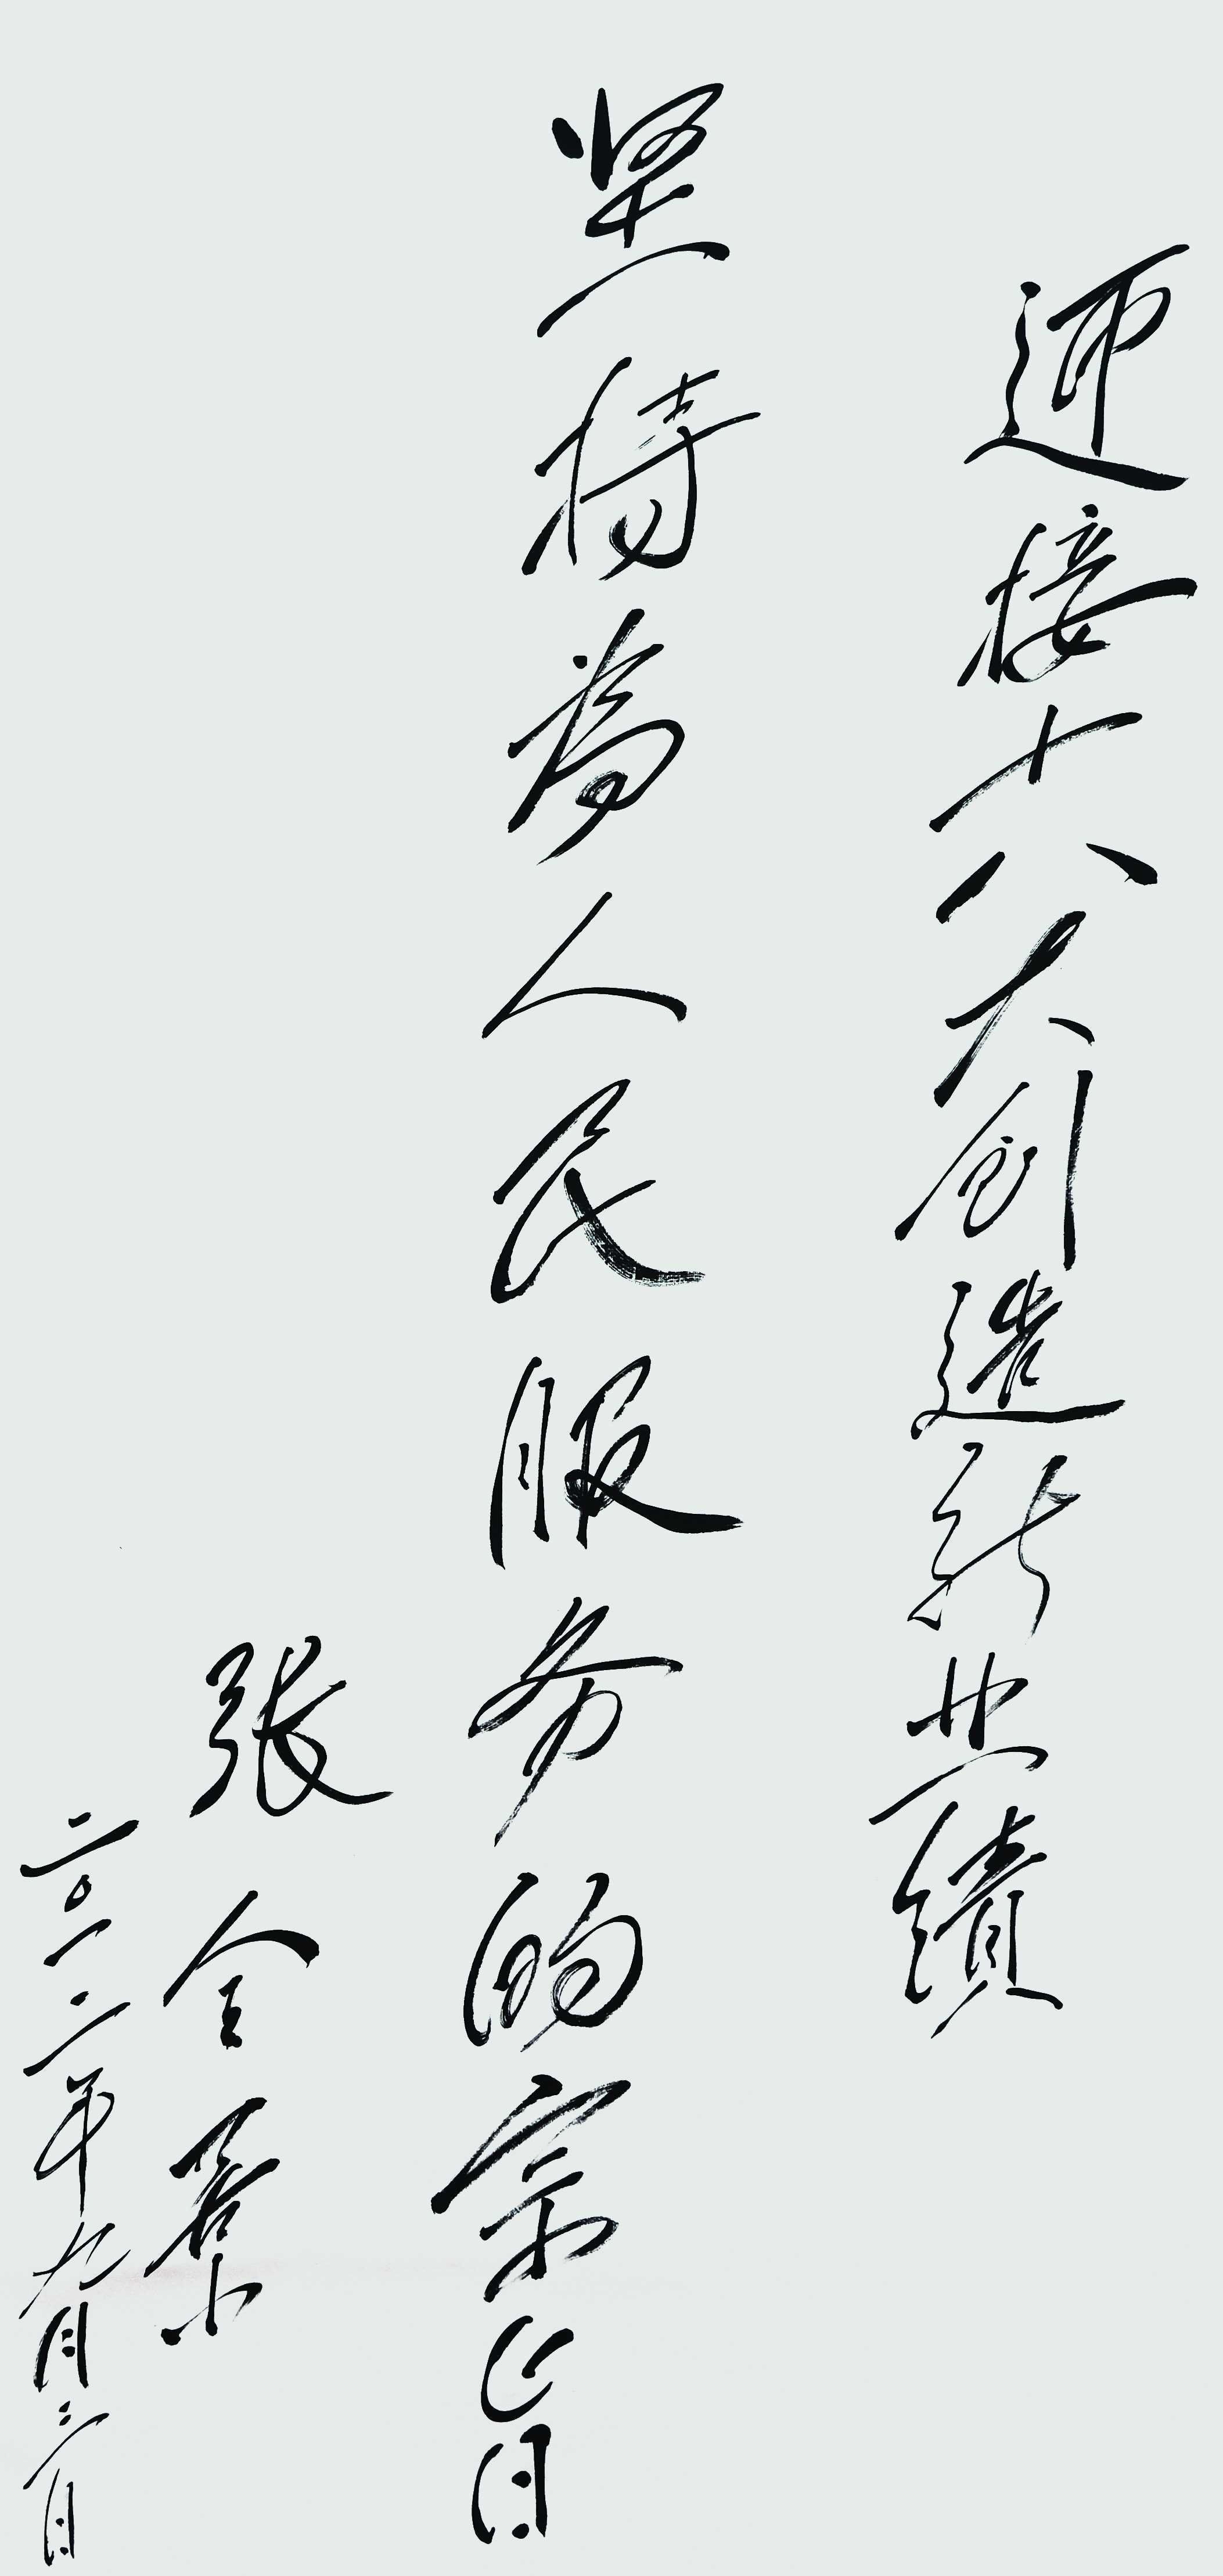 迎接十八大创造新业绩
坚持为人民服务的宗旨
张全景
二〇一二年九月三日